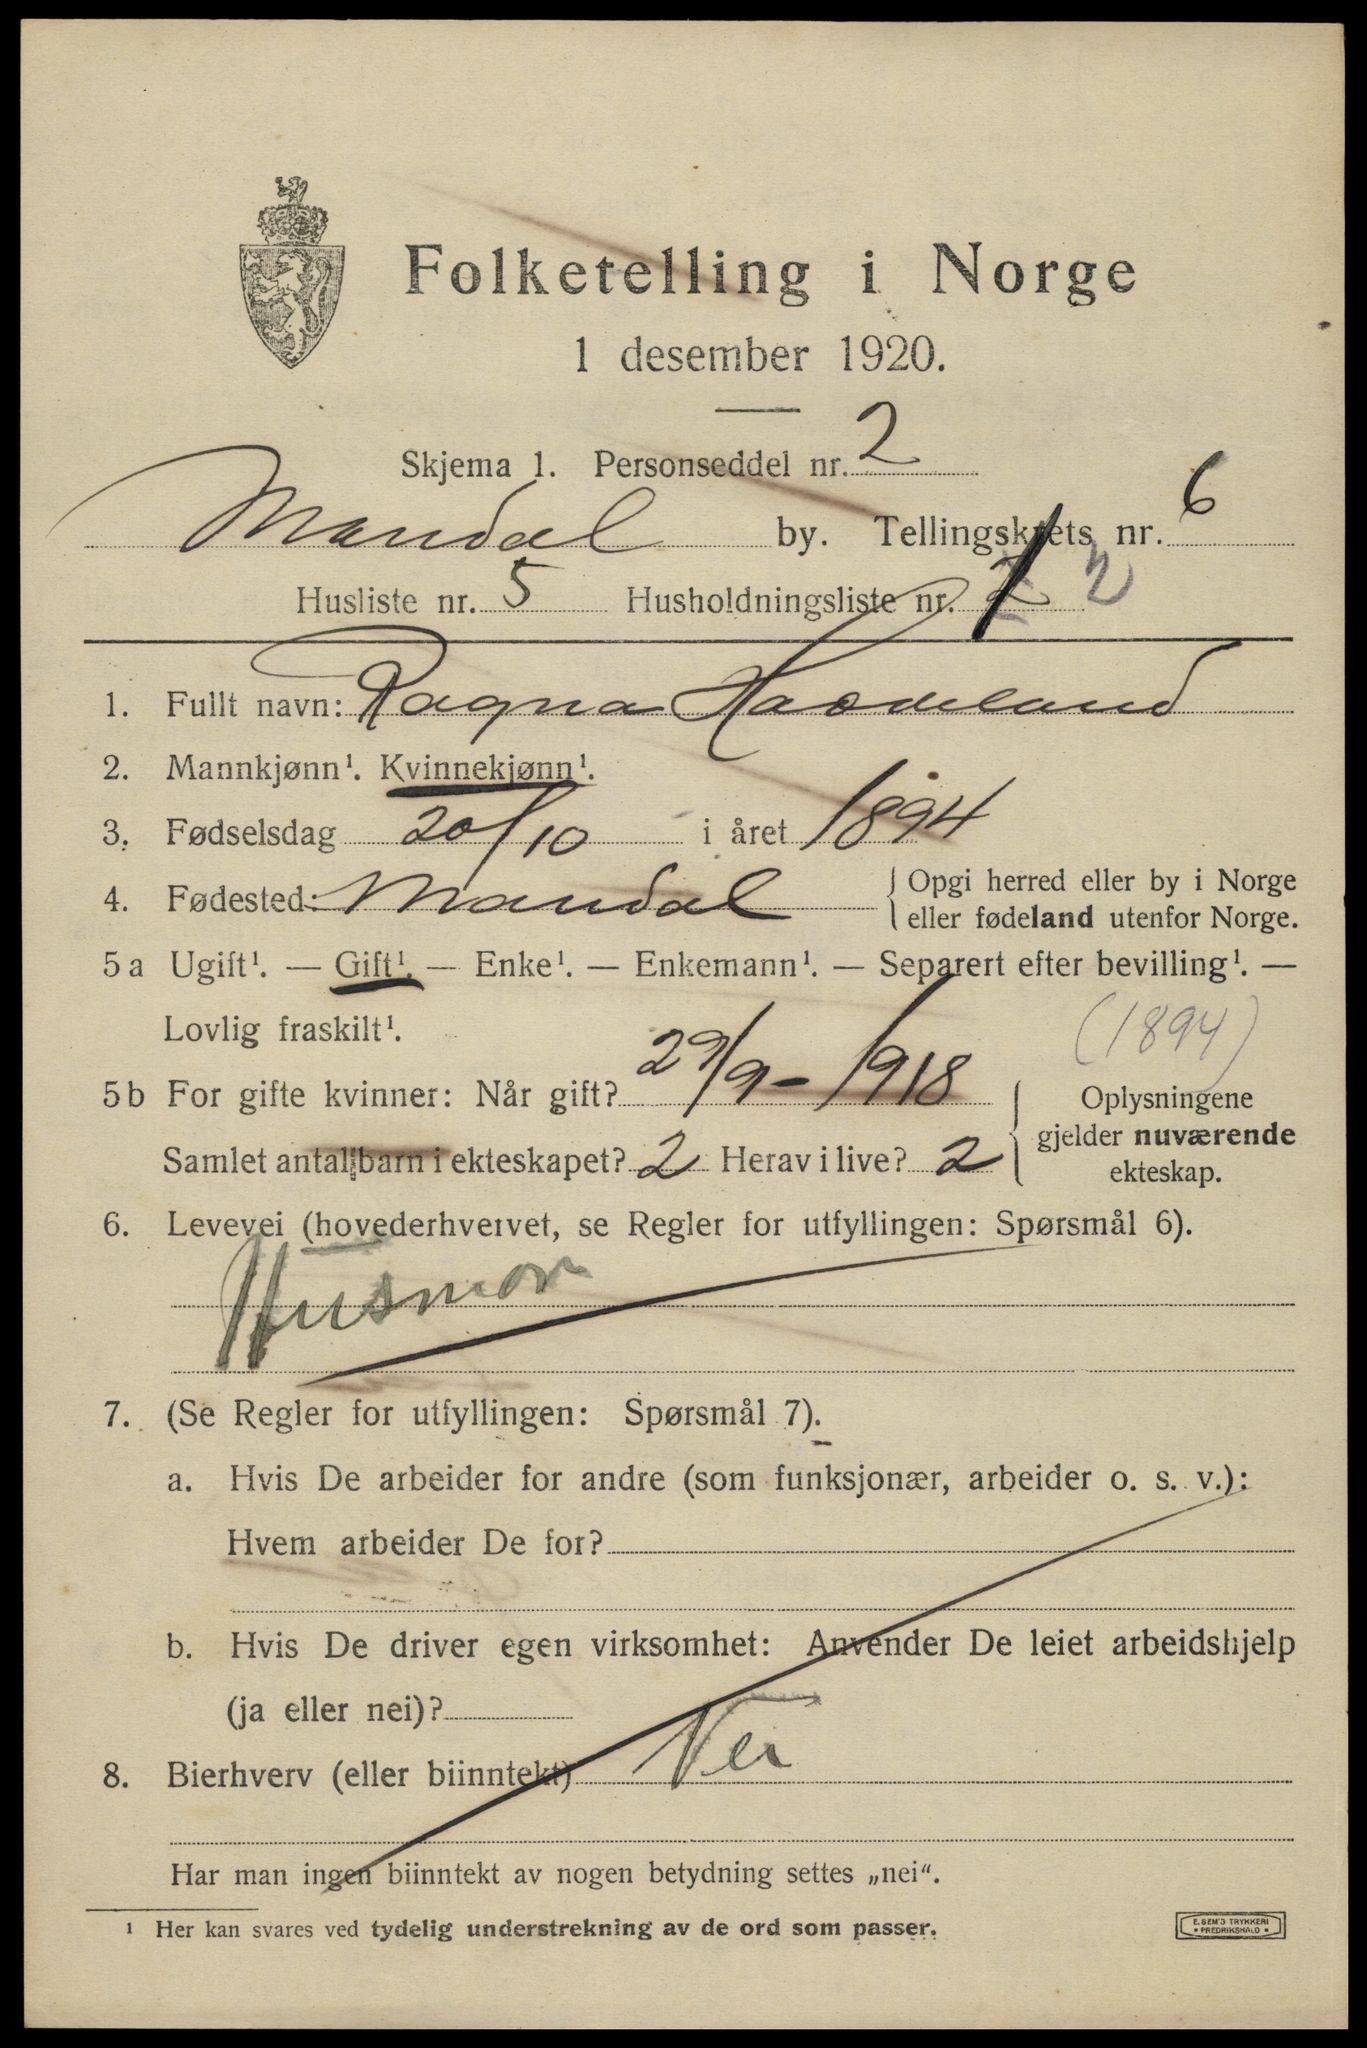 Folketelling i Norge
1 desember 1920.
Skjema 1. Personseddel nr. 2
Mandal by. Tellingskrets nr. 6
Husliste nr. 5 Husholdningsliste nr. 2
1. Fullt navn: Ragna
2. Mannkjønn¹. Kvinnekjønn¹.
3. Fødselsdag 20/10 i året 1894
4. Fødested: Mandal { Opgi herred eller by i Norge
eller fødeland utenfor Norge.
5 a Ugift¹. — Gift¹. — Enke¹. — Enkemann¹. — Separert efter bevilling¹. —
Lovlig fraskilt¹.
(1894)
5 b For gifte kvinner: Når gift? 29/9 - 1918
Samlet antal barn i ekteskapet? 2 Herav i live? 2
Oplysningene
gjelder nuværende
ekteskap.
6. Levevei (hovederhvervet, se Regler for utfyllingen: Spørsmål 6).
Husmor
7. (Se Regler for utfyllingen: Spørsmål 7).
a. Hvis De arbeider for andre (som funksjonær, arbeider o. s. v.):
Hvem arbeider De for?
b. Hvis De driver egen virksomhet: Anvender De leiet arbeidshjelp
(ja eller nei)?
8. Bierhverv (eller biinntekt) Nei
Har man ingen biinntekt av nogen betydning settes „nei“.
¹ Her kan svares ved tydelig understrekning av de ord som passer.
E. SEM'S TRYKKERI
• FREDRIKSHALD •